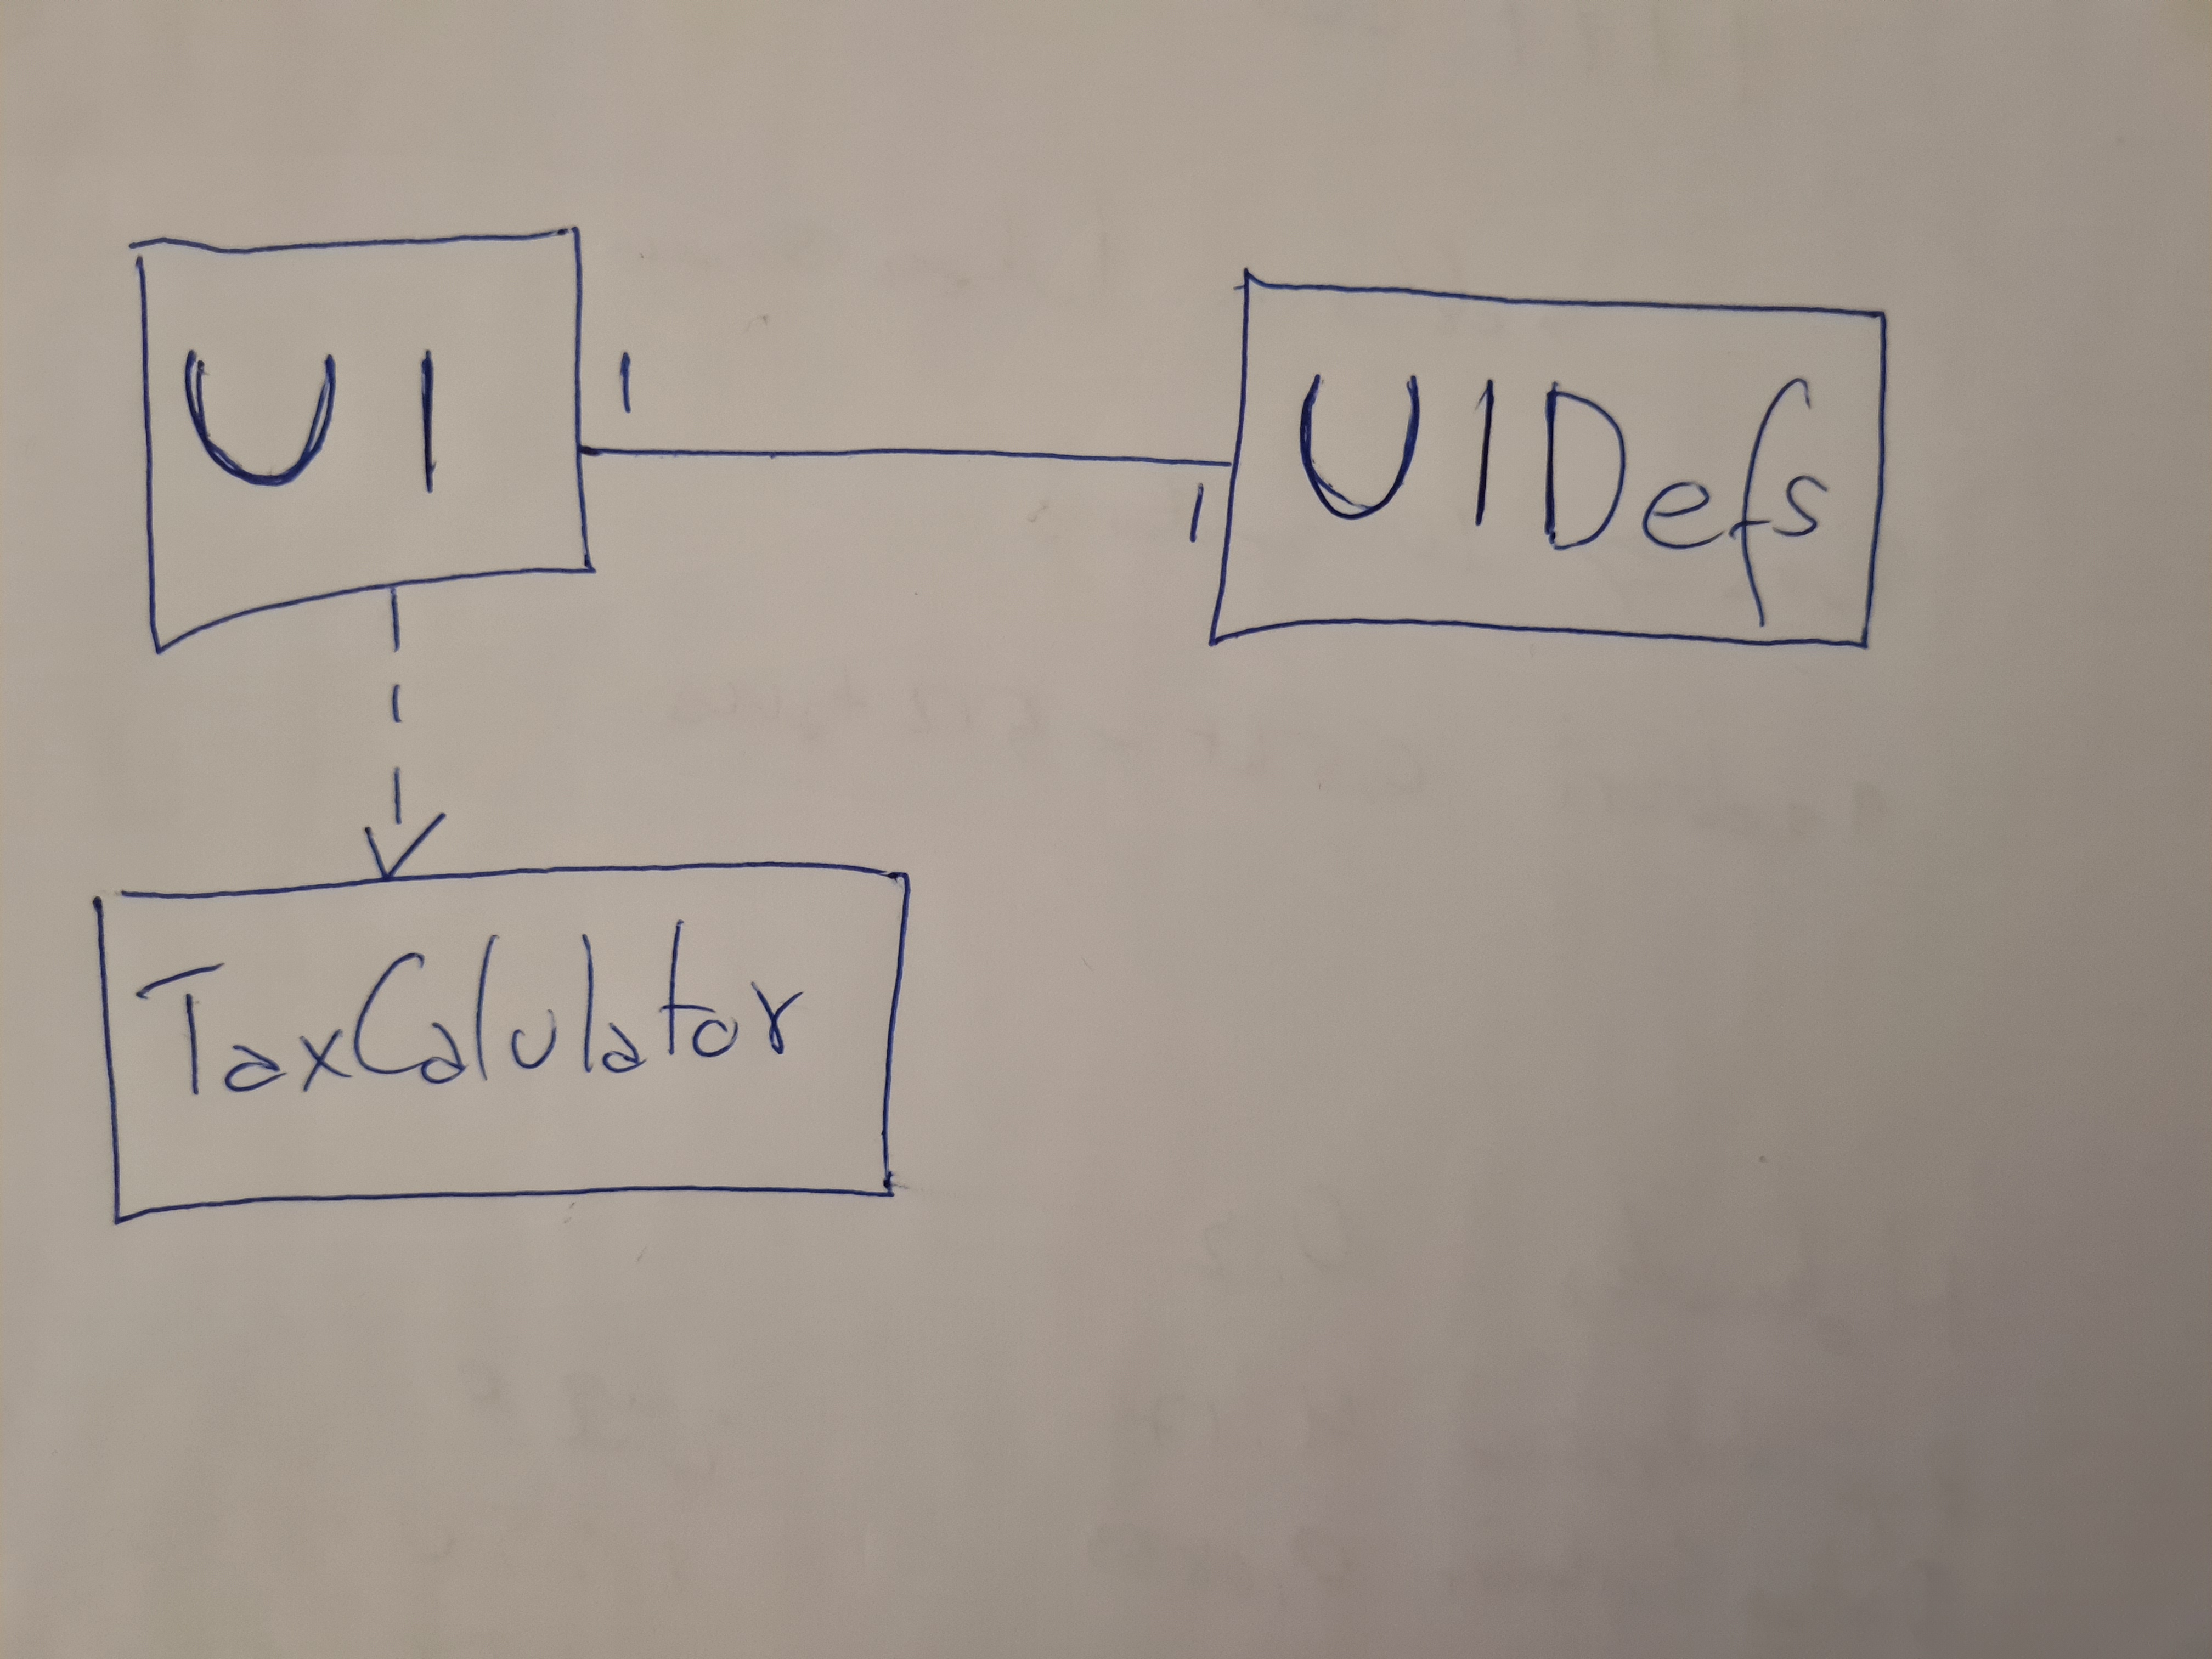 UI
1
UIDefs
1
TaxCalulator